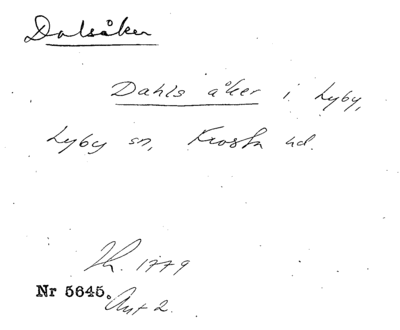 Dalsåker
Dahls åker i Lyby,
Lyby sn, Frosta hd.
Th. 1779
Nr 5645.
Ant 2.